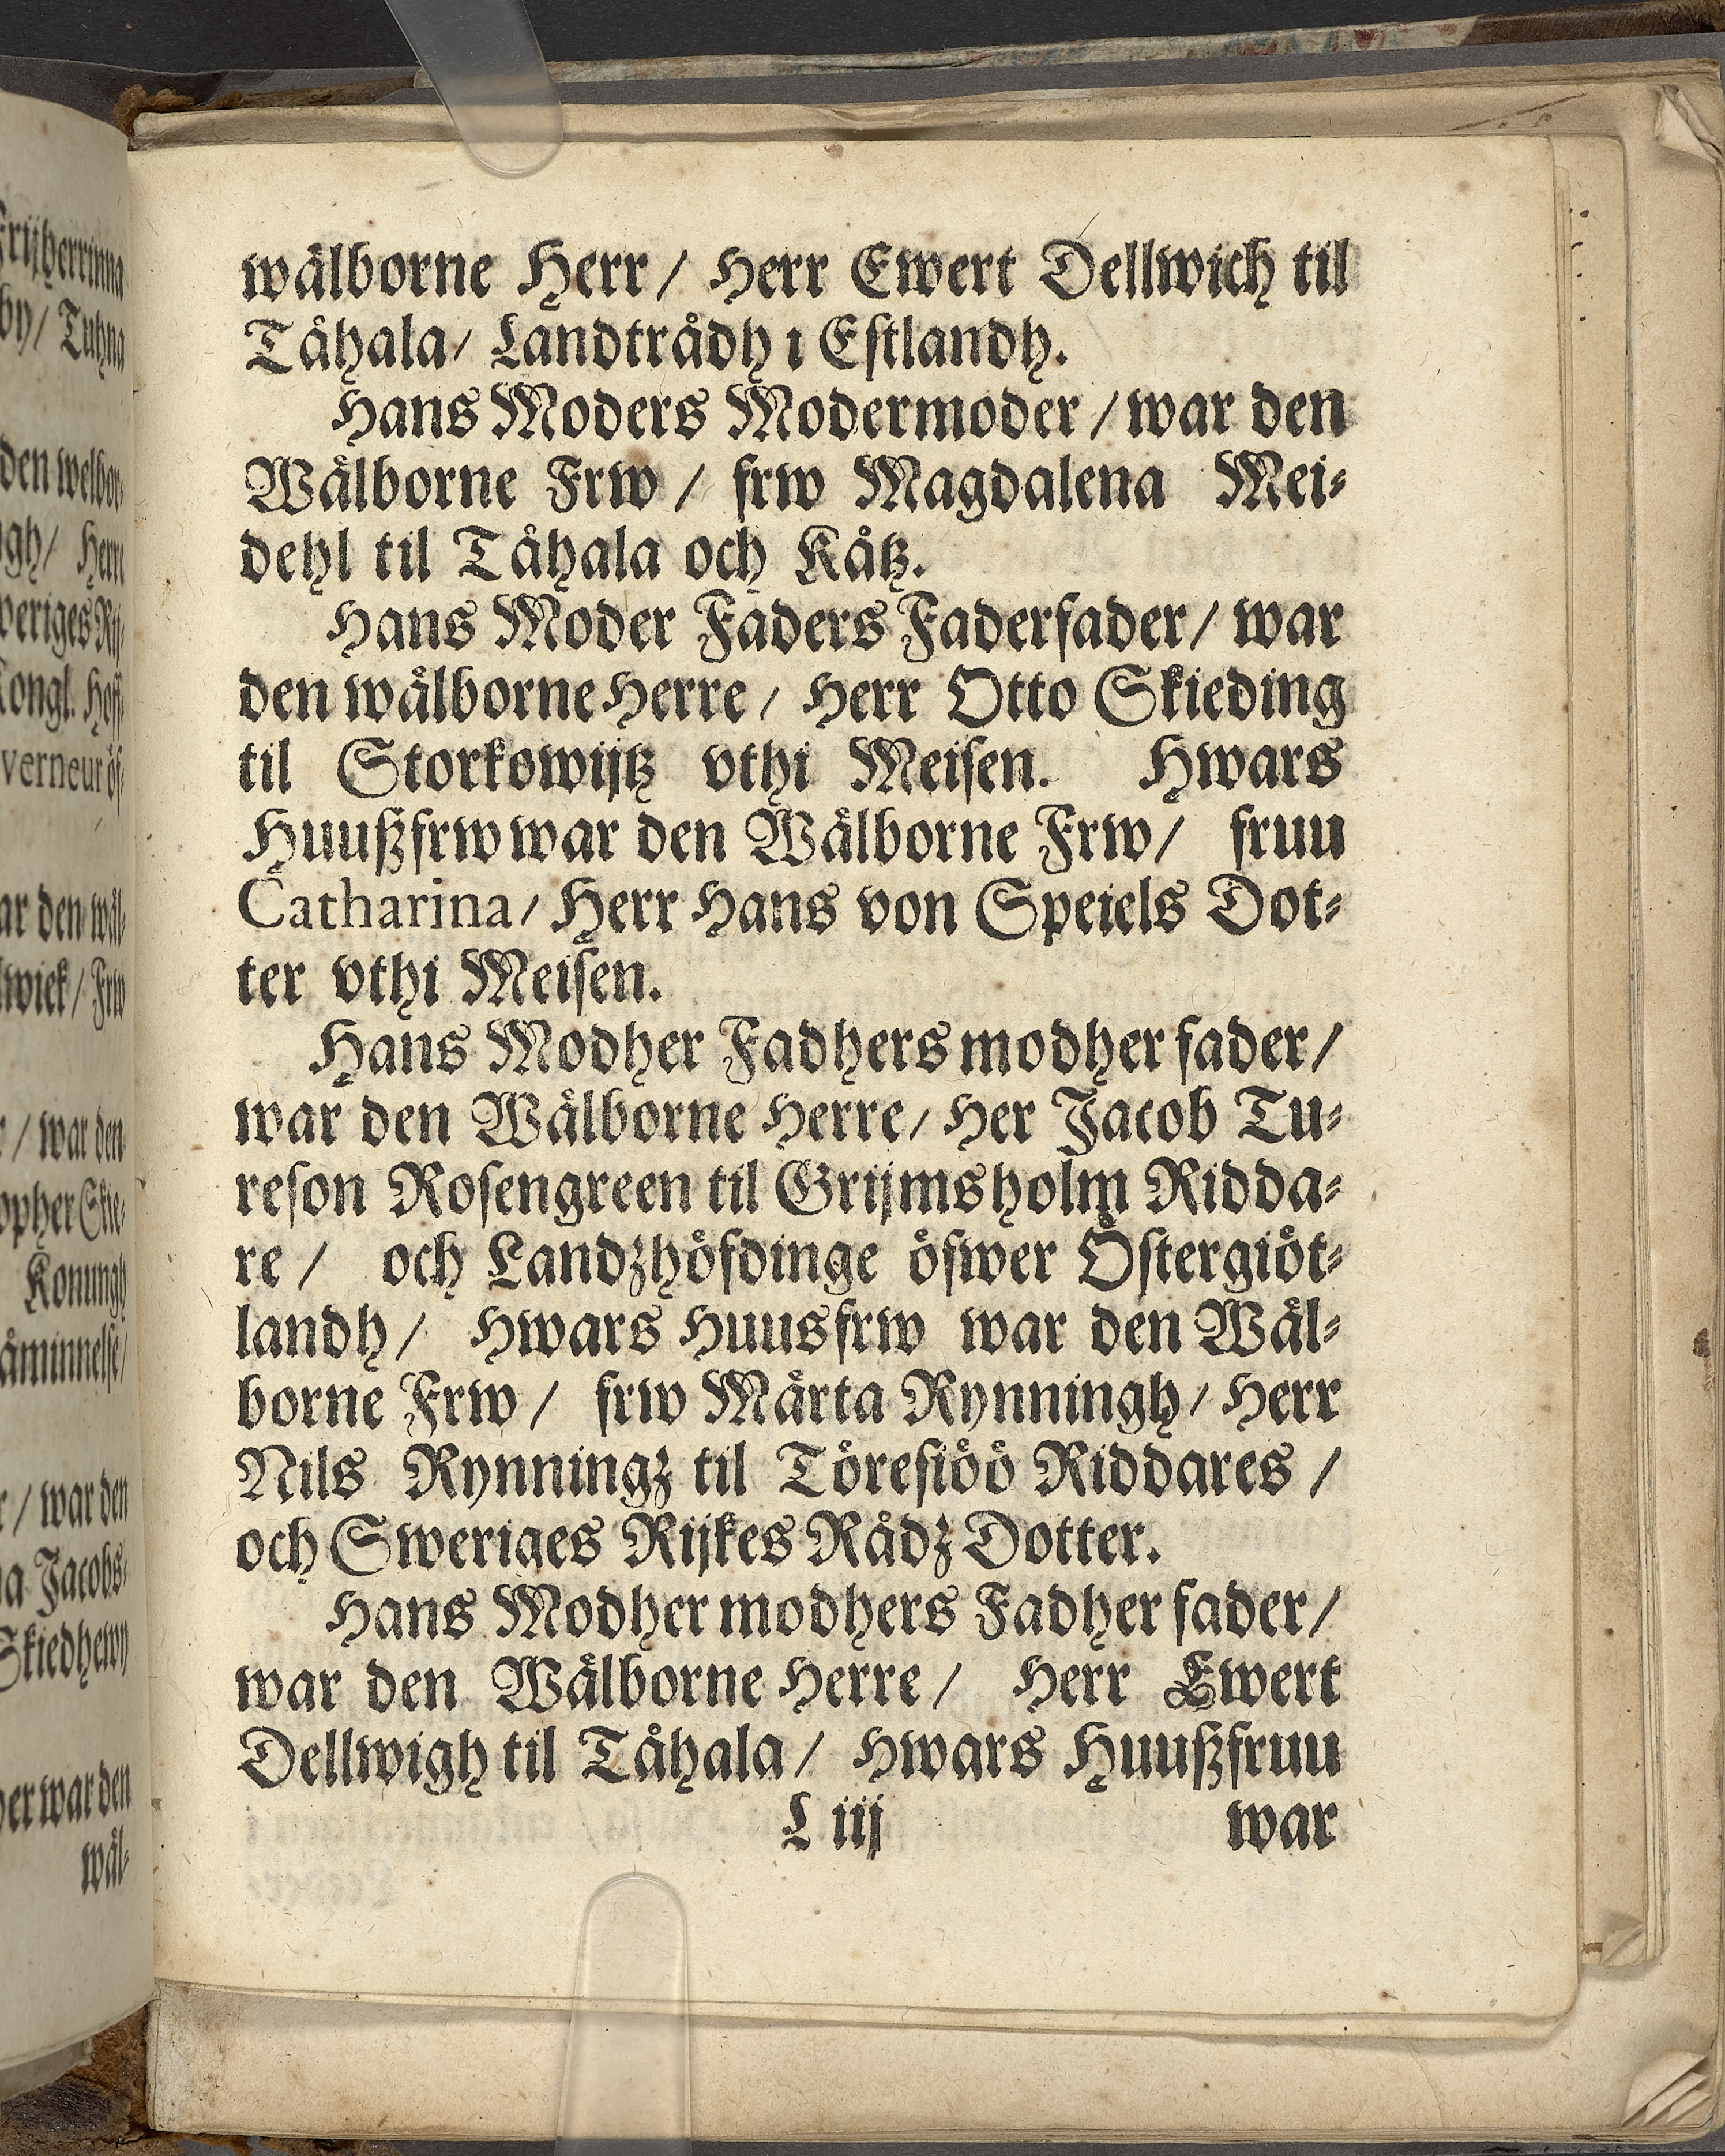 wälborne Herr / Herr Ewert Dellwich til
Tåhala / Landtrådh i Estlandh.
Hans Moders Modermoder / war den
Wälborne Frw / frw Magdalena Mei-
dehl til Tåhala och Kåtz.
Hans Moder Faders Faderfader / war
den wälborne Herre / Herr Otto Skieding
til Storkowijtz vthi Meisen. Hwars
Huußfrw war den Wälborne Frw / fruu
Catharina / Herr Hans von Speiels Dot-
ter vthi Meisen.
Hans Modher Fadhers modher fader /
war den Wälborne Herre / Her Jacob Tu-
reson Rosengreen til Grijmsholm Ridda-
re / och Landzhöfdinge öfwer Östergiöt-
landh / Hwars Huusfrw war den Wäl-
borne Frw / frw Märta Rynningh / Herr
Nils Rynningz til Töresiöö Riddares /
och Sweriges Rijkes Rådz Dotter.
Hans Modher modhers Fadher fader /
war den Wälborne Herre / Herr Ewert
Dellwigh til Tåhala / Hwars Huußfruu
L iij war